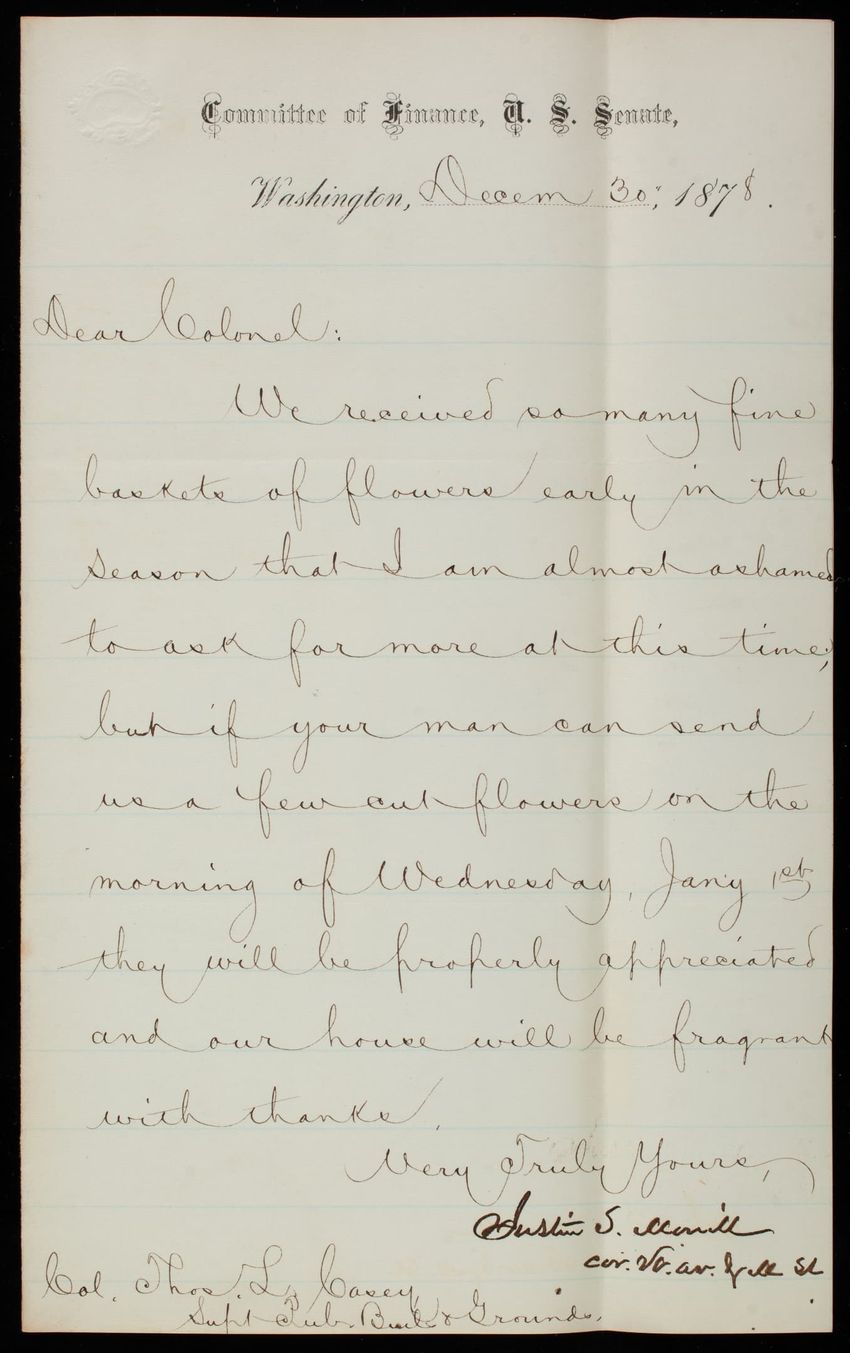 Committee of Finance, U. S. Senate,
Washington, Decem 30, 1878.
Dear Colonel:
We received so many fine
baskets of flowers early in the
season that I am almost ashamed
to ask for more at this time,
but if your man can send
us a few cut flowers on the
morning of Wednesday, Jany 1st
they will be properly appreciated
and our house will be fragrant
with thanks.
Very Truly Yours,
Justin S. Morrill
cor. Vt. av. & M St
Col. Thos. L. Casey,
Supt Pub. Build & Grounds.